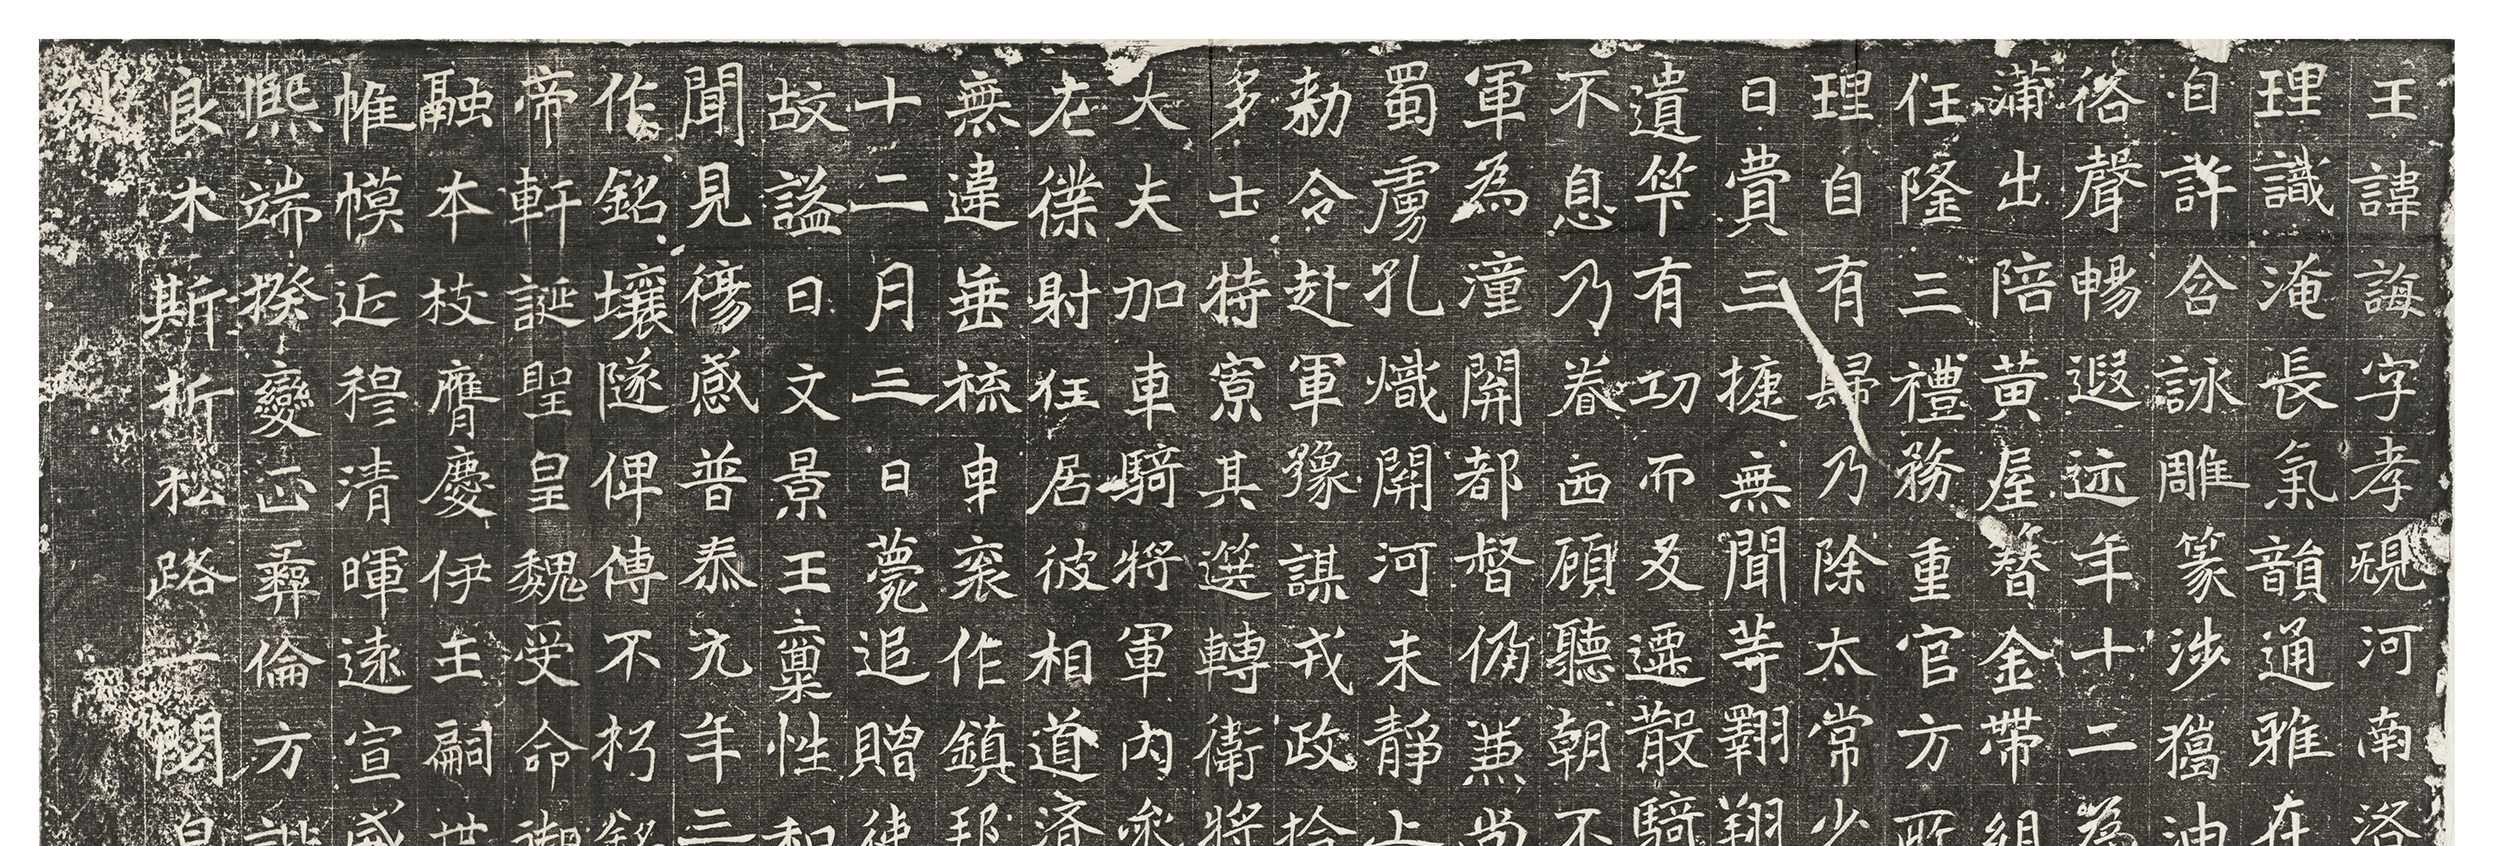 王諱誨字孝規河南洛
理識淹長氣韻通雅在
自許含詠雕篆涉獵油
俗聲暢遐迩年十二為
蒲出陪黃屋簪金帶組
任隆三禮務重官方所
理自有歸乃除太常少
日費三捷無聞等翾翔
遺竿有功而又還散騎
不息乃眷西顧聽朝不
軍為潼關都督仍兼尚
蜀虜孔熾關河未靜上
勑令赴軍豫謀戎政捨
多士特寮其選轉衛將
大夫加車騎將軍內參
左僕射任居彼相道濟
無違垂旒車袞作鎮邦
十二月三日薨追贈使
故謚曰文景王稟性和
聞見傷感普泰元年三
作銘壤隧俾傳不朽銘
帝軒誕聖皇魏受命御
融本枝膺慶伊主嗣世
帷幙近穆清暉遠宣威
熙端揆變正彝倫方諧
良木斯折松路一閟泉